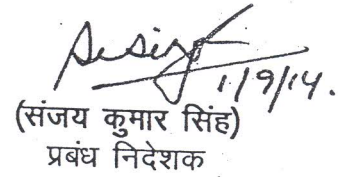 1/9/14.
(संजय कुमार सिंह)
प्रबंध निदेशक